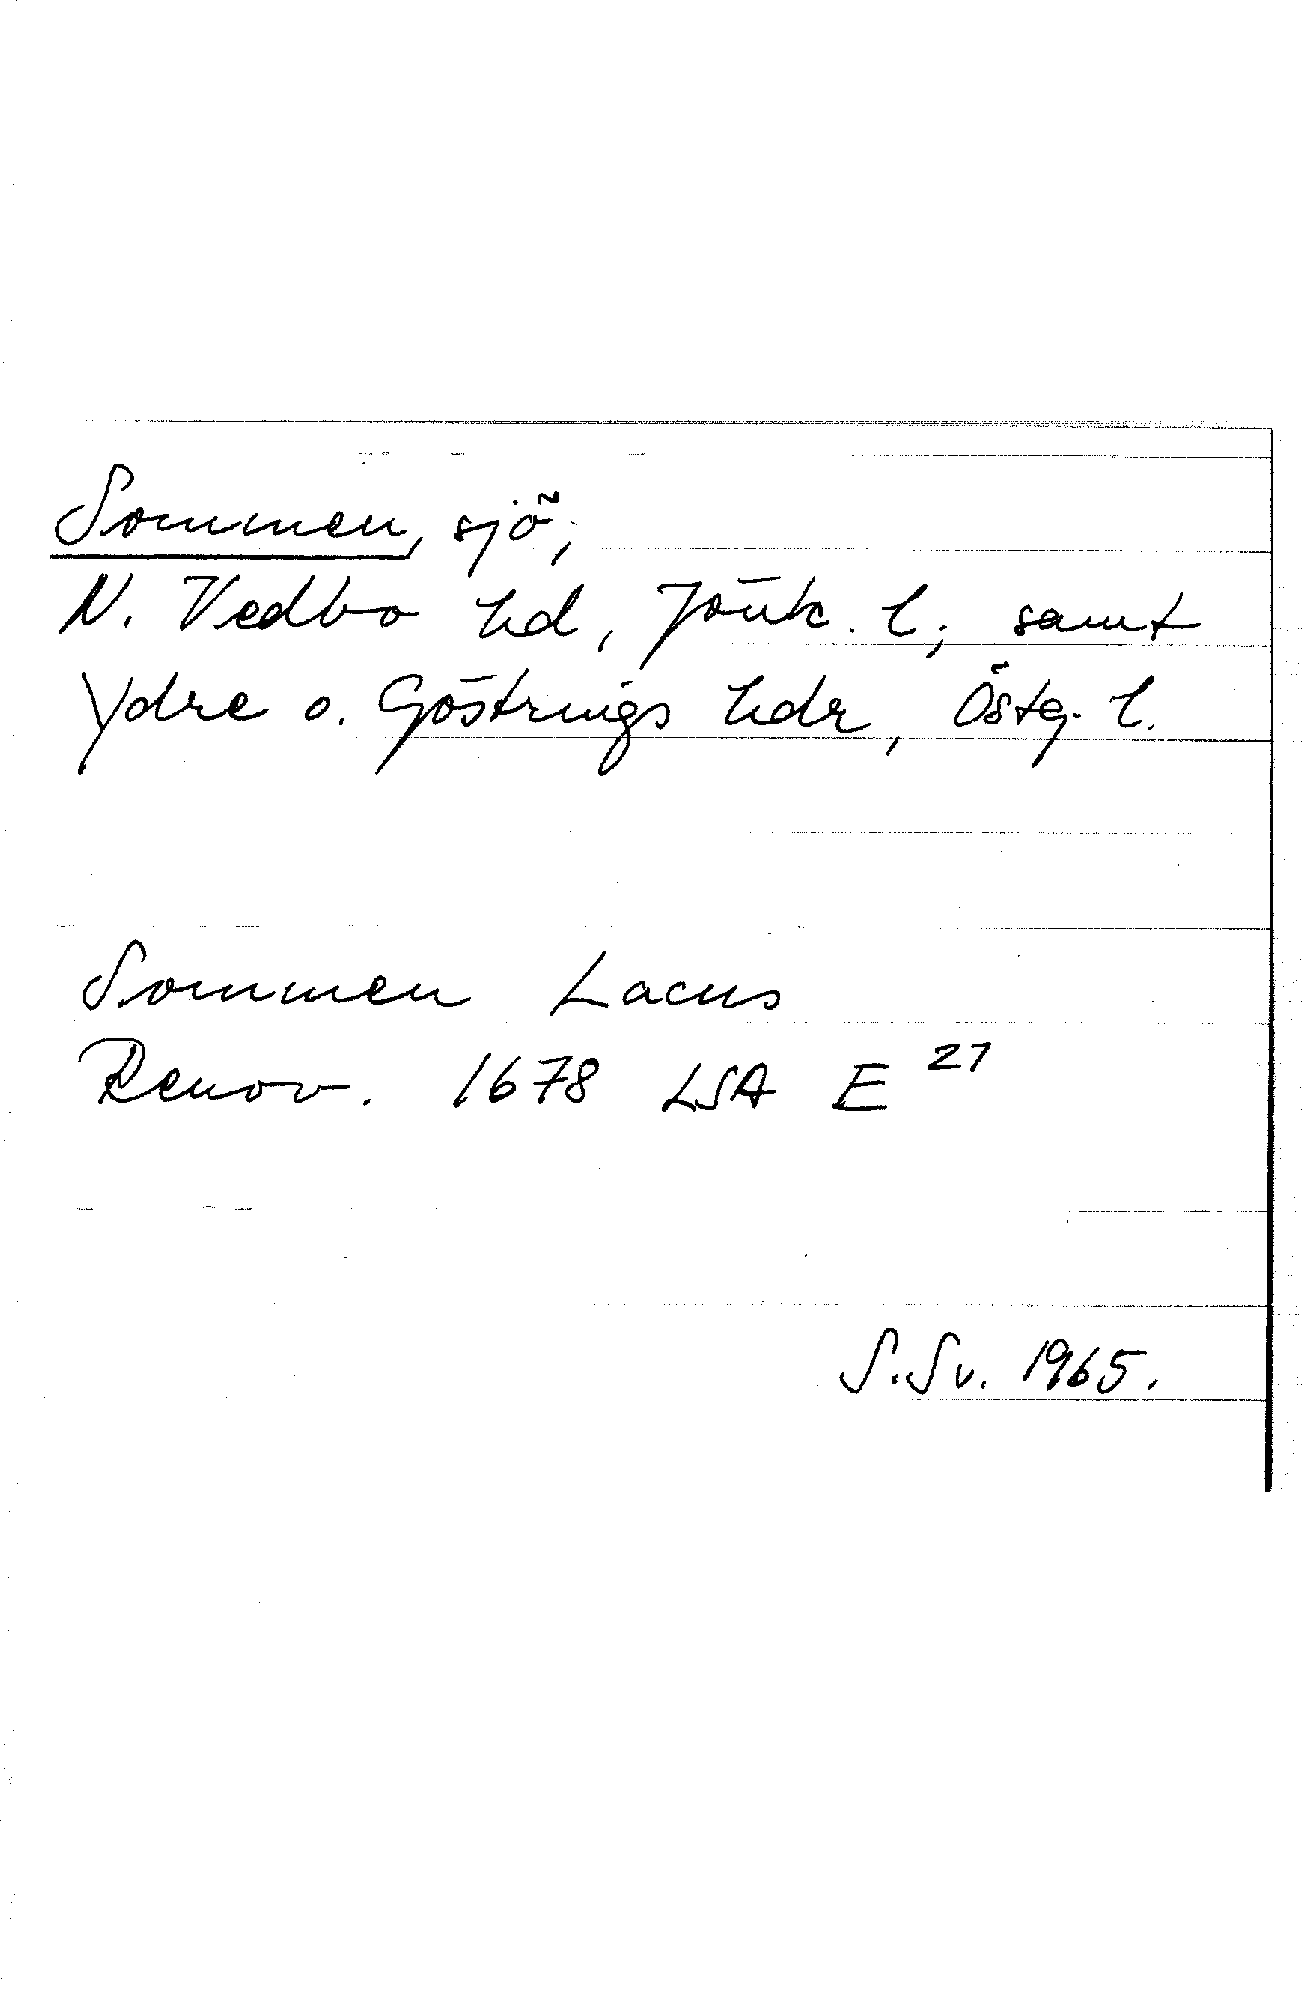 Sommen, sjö;
N. Vedbo hd, Jönk. l; samt
Ydre o. Göstrings hdr, Östg. l.
Sommen Lacus
Renov. 1678 LSA E 27
S.Sv. 1965.